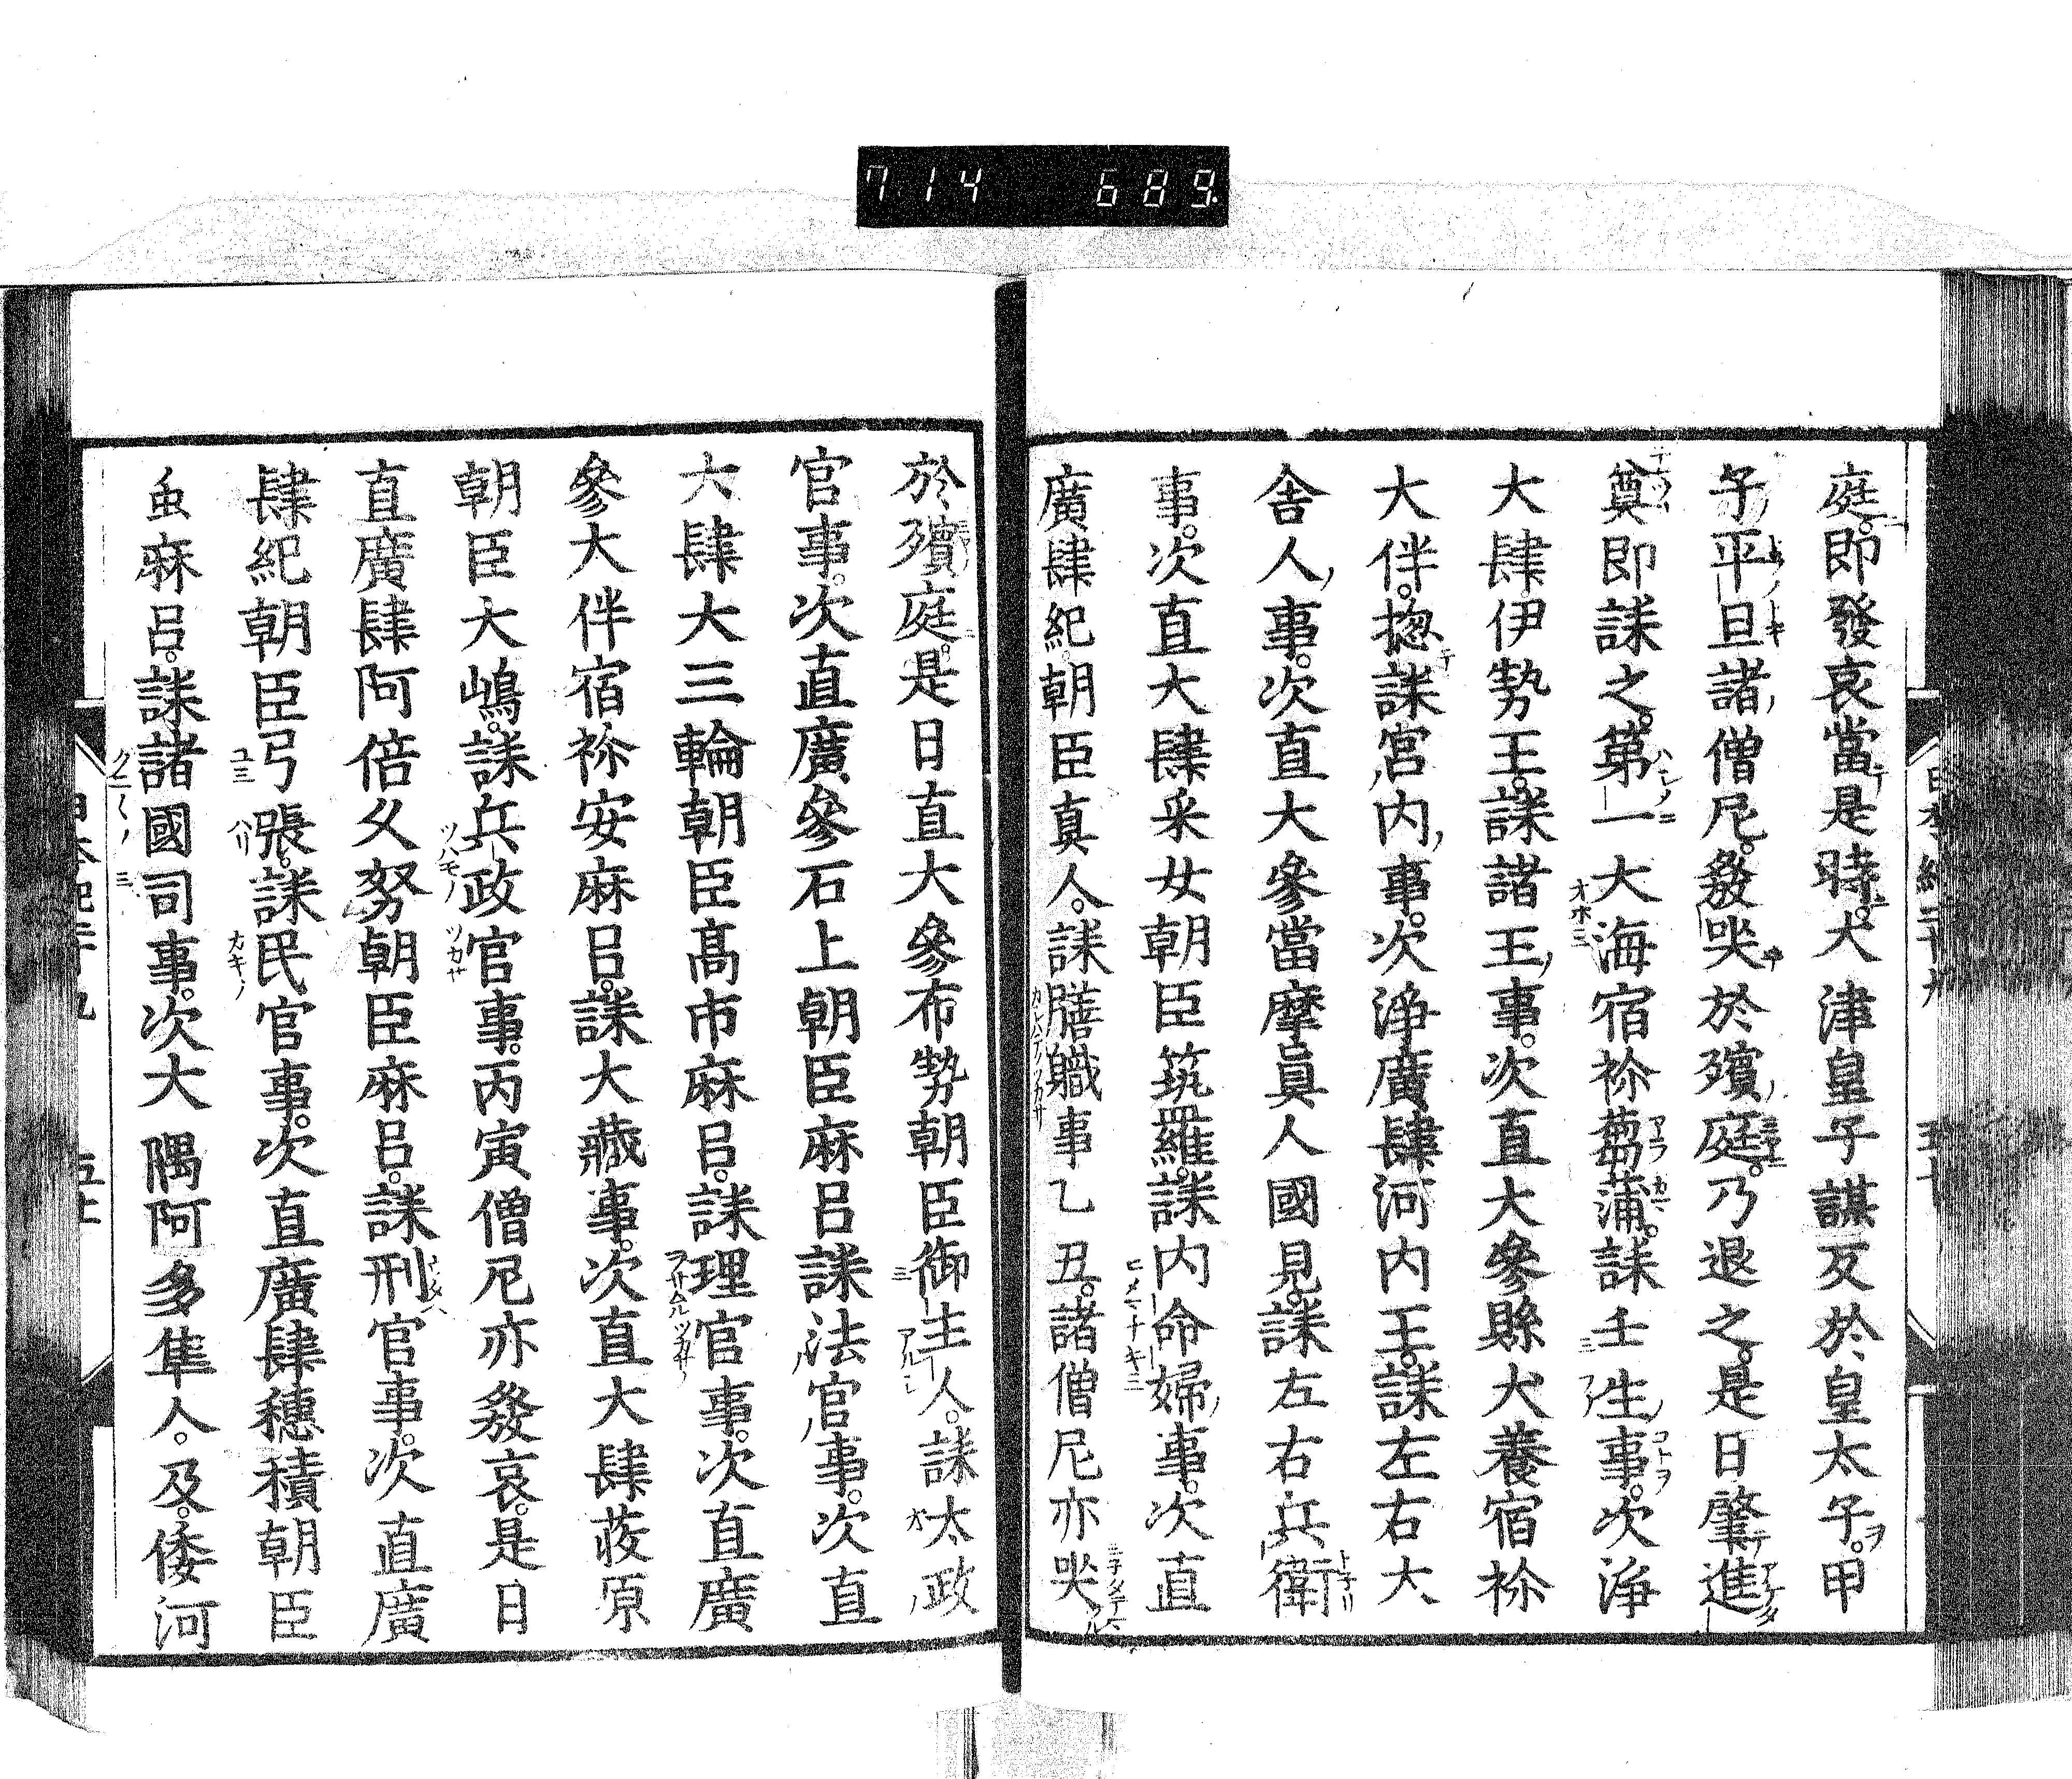 7 14 689
庭。即發哀當是時。大津皇子謀反於皇太子。甲
子平旦諸僧尼。發哭於殯庭。乃退之。是日肇進
奠即誄之。第一大海宿祢蒭蒲。誄壬生事。次淨
大肆伊勢王。誄諸王事。次直大參縣犬養宿祢
大伴。揔誄宮内事。次淨廣肆河内王。誄左右大
舍人事。次直大參當摩眞人國見。誄左右兵衛
事。次直大肆采女朝臣筑羅。誄内命婦事。次直
廣肆紀朝臣真人。誄膳職事乙丑。諸僧尼亦哭
於殯庭。是日直大參布勢朝臣御主人。誄太政
官事。次直廣參石上朝臣麻呂誄法官事。次直
大肆大三輪朝臣髙市麻呂。誄理官事。次直廣
參大伴宿祢安麻呂。誄大藏事。次直大肆䔈原
朝臣大嶋。誄兵政官事。丙寅僧尼亦發哀。是日
直廣肆阿倍久努朝臣麻呂。誄刑官事。次直廣
肆紀朝臣弓張。誄民官事。次直廣肆穗積朝臣
虫麻呂。誄諸國司事。次大隅阿多隼人。及。倭河